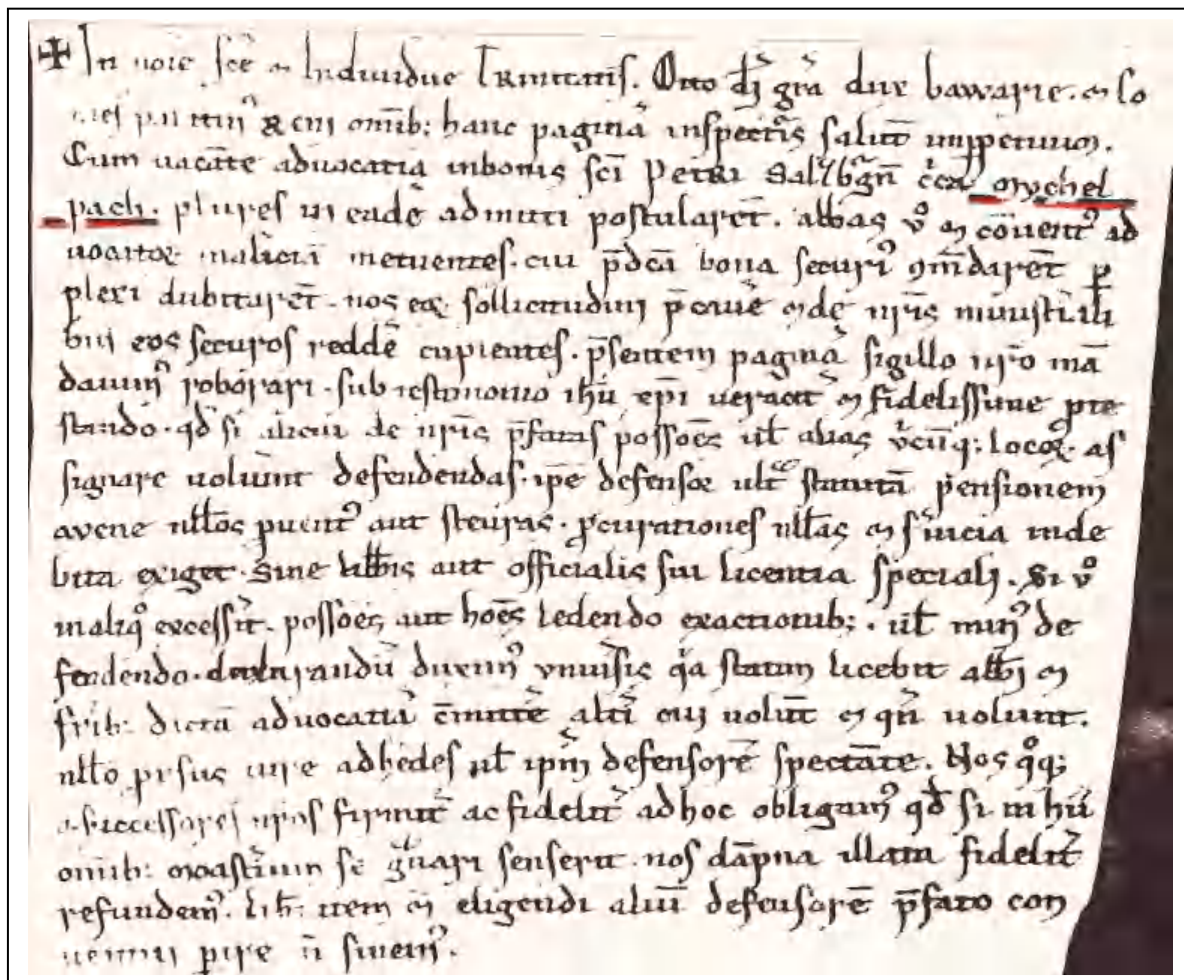 ✠ In noīe scē ⁊ Individue Trinitatis. Otto dī grā dux bawarie. ⁊ co
mes palatin᷒ Reni omīb: hanc paginā inspectur̄s salutē imppetuum.
Cum vacāte advocatia inbonis scī Petri Salzbgn̄ c̄ca mychel
pach. plures in eadē admitti postularēt. abbas v̊ ⁊ cōvent᷒ ad
vocatoꝝ maliciā metuentes. cui p̄dc̄a bona securi᷒ ꝯmdarēt ꝑ
plexi dubitarēt. nos eoꝝ sollicitudini p̄cavē ⁊ de nr̄is ministiali
bus eos securos reddē cupientes. p̄sentem paginā sigillo nr̄o mā
davim᷒ roborari. sub testimonio ihū xp̄i veracit̄ ⁊ fidelissime pre
stando. qd̄ si alicui de nr̄is p̄fatas possōes ul̄ alias v̄cūq: locoꝝ as
signare voluint defendendas. ip̄e defensor ult̄ statutā pensionem
avene nll̄os aut steuras. p̄curationes nll̄as ⁊ s̄vicia inde
bita exiget. Sine abb̄is aut officialis sui licentia speciali. Si v̊
inaliq̊ excess̄it. possōes aut hoēs ledendo exactionib:. ul̄ min᷒ de
fendendo. declarandū duxim᷒ vniv̄sis q̄a statim licebit abb̄i ⁊
frīb: dictā advocatiā c̄mittē alt̄i cui volūt ⁊ qn̄ volunt.
nll̄o prsus iure adhedes ul̄ ip̄m defensorē spectāte. Nos q̊q:
⁊ successores nr̄os firmit̄ ac fidelit̄ ad hoc obligam᷒ qd̄ si in hīi
omīb: monast̄ium se g̊vari senserit. nos dāpna illata fidelit̄
refundem᷒. lib̄: item ⁊ eligendi aliū defensorē p̄fato con
ventui pire n̄ sinem᷒.